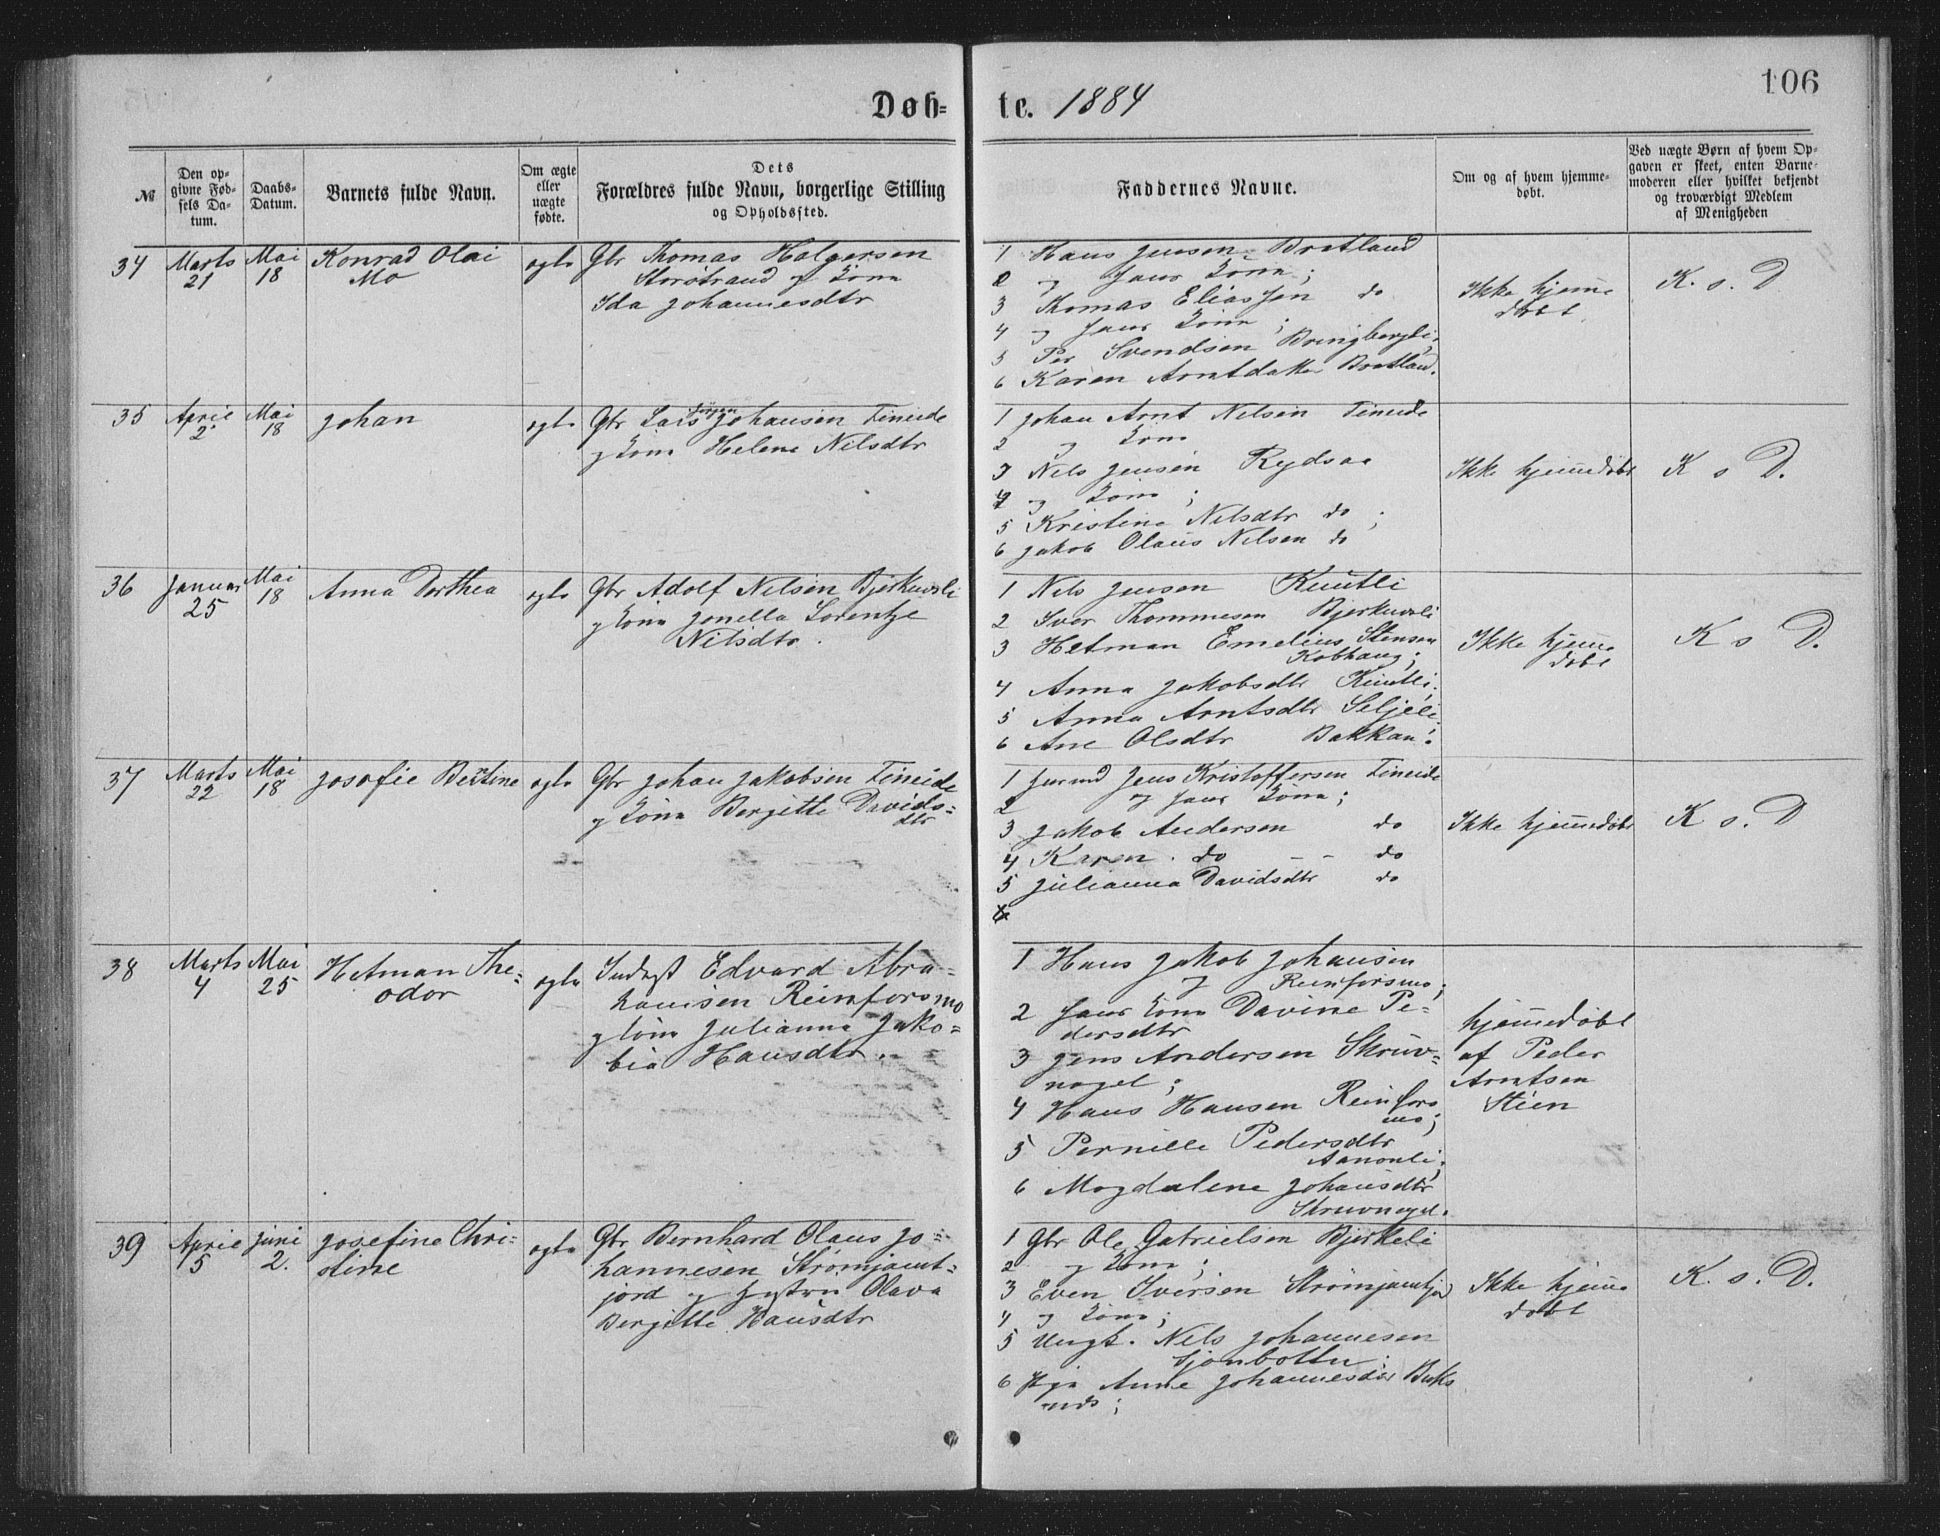 106
Døb-
te. 1884
№
Den op-
givne Fød-
sels Da-
tum.
Daabs-
Datum.
Barnets fulde Navn.
Om ægte
eller
uægte
fødte.
Dets
Forældres fulde Navn, borgerlige Stilling
og Opholdssted.
Faddernes Navne.
Om og af hvem hjemme-
døbt.
Ved uægte Børn af hvem Op-
gaven er skeet, enten Barne-
moderen eller hvilket bekjendt
og troværdigt Medlem
af Menigheden
34
Marts
21
Mai
18
Konrad Olai
Mo
ægte
Gbr Thomas Holgersen
Storstrand og Kone
Ida Johannesdtr
1 Hans Jensen Bratland
2 og Hans Kone;
3 Thomas Eliassen do
4 og Hans Kone;
5 Per Svendsen Bringbergli,
6 Karen Arntdatter Bratland.
Ikke hjemme
døbt
K. s. D
35
April
2
Mai
18
Johan
ægte
Gbr Lars Jørgen Johansen Fineide
og Kone Helene Nilsdtr
1 Johan Arnt Nelsen Fineide
2 og Kone
3 Nels Jensen Rydsaa
4 og Kone;
5 Kristine Nelsdtr do;
6 Jakob Olaus Nelsen do
Ikke hjemmedøbt
K s D.
36
Januar
25
Mai
18
Anna Dorthea
ægte
Gbr Adolf Nelsen Bjerkmoli
og Kone Jonella Lorentze
Nilsdtr.
1 Nels Jensen Kuutli
2 Iver Thommesen Bjerkmoli
3 Hetman Emelius Stensen
Kobhaug;
4 Anna Jakobsdtr Kuutli;
5 Anna Arntsdtr Seljeli;
6 Ane Olsdtr Bakkan.
Ikke hjemme
døbt
K s D.
37
Marts
22
Mai
18
Josefie Bertine
ægte
Gbr Johan Jakobsen Fineide
og Kone Bergitte Davids-
dtr
1 Jens Kristoffersen Fineide
2 og Hans Kone;
3 Jakob Andersen do
4 Karen do - - do
5 Julianna Davidsdtr do
6
Ikke hjemmedøbt
K s. D
38
Marts
4
Mai
25
Hetman The-
odor
ægte
Indst Edvard Abra-
hamsen Reinforsmo
og Kone Julianna Jako-
bia Hansdtr.
1 Hans Jakob Johansen
og Reinforsmo;
2 Hans Kone Davine Pe-
dersdtr
3 Jens Andersen Skruv-
nagel;
4 Hans Hansen Reinfors
mo;
5 Pernille Pedersdtr
Aanonli;
6 Magdalene Johansdtr
Skruvnagel.
hjemmedøbt
af Peder
Arntsen
Stien
39
April
5
Juni
2.
Josefine Chri-
stine
ægte
Gbr Bernhard Olaus Jo-
hannesen Strømjamt-
jord og Hustru Olava
Bergitte Hansdtr
1 Gbr Ole Gabrielsen Bjerkeli
2 og Kone;
3 Even Iversen Strømjamtjor
4 og Kone;
5 Ungk. Nels Johannesen
Sjonbotten;
6 Pige Anne Johannesdtr Buks
nds;
Ikke hjemme
døbt
K. s. D.